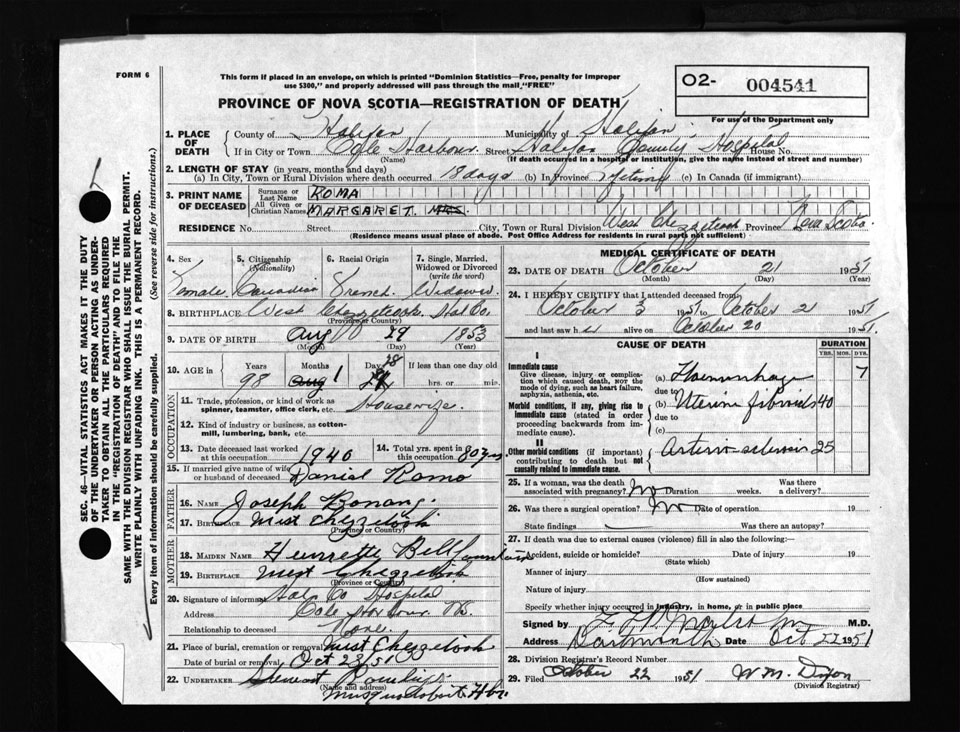 FORM 6
This form if placed in an envelope, on which is printed "Dominion Statistics—Free, penalty for improper
use $300," and properly addressed will pass through the mail "FREE"
O2- 004541
For use of the Department only
PROVINCE OF NOVA SCOTIA—REGISTRATION OF DEATH
1. PLACE OF DEATH County of Halifax Municipality of Halifax
If in City or Town Cole Harbour Street Halifax County Hospital House No.
(Name) (If death occurred in a hospital or institution, give the name instead of street and number)
2. LENGTH OF STAY (in years, months and days)
(a) In City, Town or Rural Division where death occurred 18 days (b) In Province lifetime (c) In Canada (if immigrant)
3. PRINT NAME OF DECEASED Surname or Last Name ROMA
All Given or Christian Names MARGARET. MRS.
RESIDENCE No. Street City, Town or Rural Division West Chezzetcook Province Nova Scotia
(Residence means usual place of abode. Post Office Address for residents in rural parts not sufficient)
4. Sex 5. Citizenship (Nationality) 6. Racial Origin 7. Single, Married, Widowed or Divorced (write the word)
Female Canadian French Widowed
8. BIRTHPLACE West Chezzetcook Hal Co.
(Province or Country)
9. DATE OF BIRTH Aug 29 1853
(Month) (Day) (Year)
10. AGE in Years Months Days If less than one day old
98 Aug 1 28 hrs. or min.
OCCUPATION
11. Trade, profession or kind of work as spinner, teamster, office clerk, etc. Housewife.
12. Kind of industry or business, as cotton-mill, lumbering, bank, etc.
13. Date deceased last worked at this occupation 1940 14. Total yrs. spent in this occupation 80 yrs
15. If married give name of wife or husband of deceased Daniel Roma
FATHER
16. NAME Joseph Bonang.
17. BIRTHPLACE West Chezzetcook
(Province or Country)
MOTHER
18. MAIDEN NAME Henrette Bellfountain
19. BIRTHPLACE West Chezzetcook
(Province or Country)
20. Signature of informant Hal. Co Hospital
Address Cole Harbour
Relationship to deceased None.
21. Place of burial, cremation or removal West Chezzetcook
Date of burial or removal Oct 23/51
22. UNDERTAKER Stewart
(Name and address)
Musquodoboit Hbr.
MEDICAL CERTIFICATE OF DEATH
23. DATE OF DEATH October 21 1951
(Month) (Day) (Year)
24. I HEREBY CERTIFY that I attended deceased from
October 3 1951 to October 21 1951
and last saw her alive on October 20 1951.
CAUSE OF DEATH DURATION
YRS. MOS. DYS.
I
Immediate cause
Give disease, injury or complication which caused death, NOT the mode of dying, such as heart failure, asphyxia, asthenia, etc.
(a) Haemorrhage 7
due to
Morbid conditions, if any, giving rise to immediate cause (stated in order proceeding backwards from immediate cause).
(b) Uterine fibroids 40
due to
(c)
II
Other morbid conditions (if important) contributing to death but not causally related to immediate cause.
Arterio-sclerosis 25
25. If a woman, was the death associated with pregnancy? No Duration weeks. Was there a delivery?
26. Was there a surgical operation? No Date of operation 19
State findings Was there an autopsy?
27. If death was due to external causes (violence) fill in also the following:—
Accident, suicide or homicide? Date of injury 19
(State which)
Manner of injury
(How sustained)
Nature of injury
Specify whether injury occurred in industry, in home, or in public place
Signed by M.D.
Address Dartmouth Date Oct 22 1951
28. Division Registrar's Record Number
29. Filed October 22 1951 W. M. Dixon
(Division Registrar)
SEC. 46—VITAL STATISTICS ACT MAKES IT THE DUTY
OF THE UNDERTAKER OR PERSON ACTING AS UNDER-
TAKER TO OBTAIN ALL THE PARTICULARS REQUIRED
IN THE "REGISTRATION OF DEATH" AND TO FILE THE
SAME WITH THE DIVISION REGISTRAR WHO SHALL ISSUE THE BURIAL PERMIT.
WRITE PLAINLY WITH UNFADING INK. THIS IS A PERMANENT RECORD.
Every item of information should be carefully supplied. (See reverse side for instructions.)